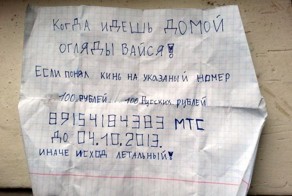 Когда идешь домой
оглядывайся!
Если понял кинь на указаный номер
100 рублей! 100 Русских рублей
89154184383 МТС
до 04.10.2013.
иначе исход летальный!